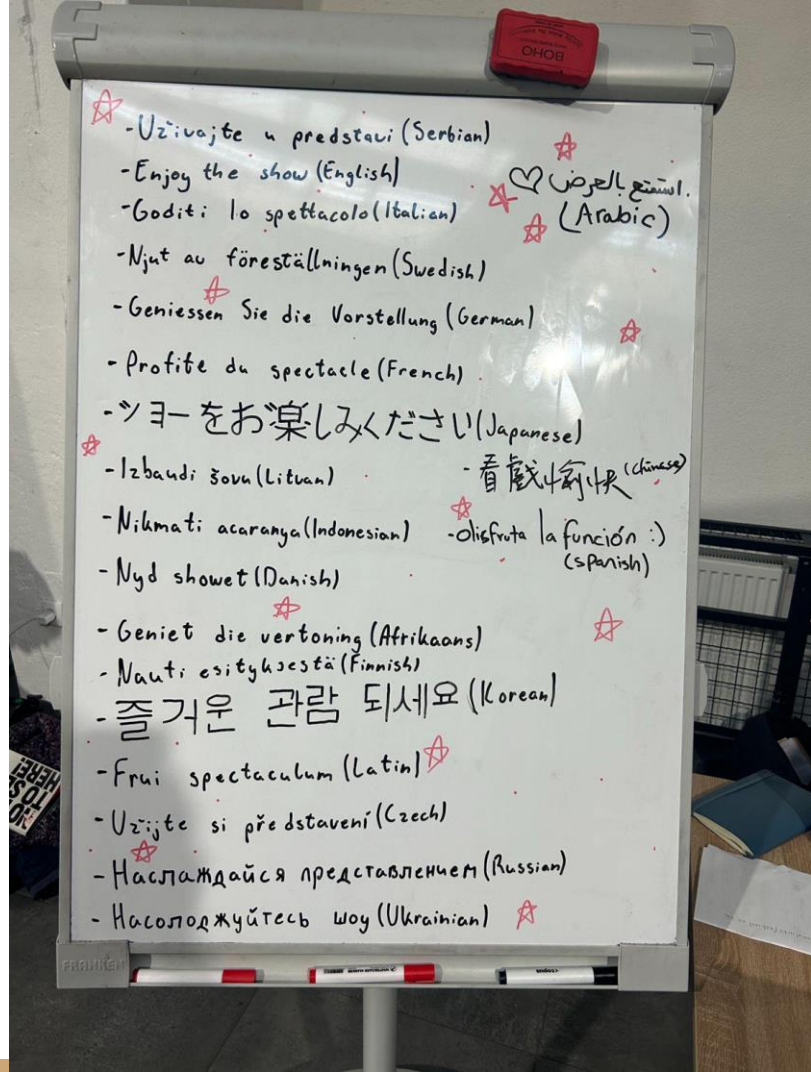 BOHO
- Uživajte u predstavi (Serbian)
- Enjoy the show (English)
- Goditi lo spettacolo (Italian)
استمتع بالعرض.
(Arabic)
- Njut av föreställningen (Swedish)
- Geniessen Sie die Vorstellung (German)
- Profite du spectacle (French)
- ショーをお楽しみください (Japanese)
- Izbaudi šovu (Lituan)
- 看戲愉快 (chinese)
- Nikmati acaranya (Indonesian)
- disfruta la función :)
(spanish)
- Nyd showet (Danish)
- Geniet die vertoning (Afrikaans)
- Nauti esityksestä (Finnish)
- 즐거운 관람 되세요 (Korean)
- Frui spectaculum (Latin)
- Užijte si představení (Czech)
- Наслаждайся представлением (Russian)
- Насолоджуйтесь шоу (Ukrainian)
FRANKEN
HERE!